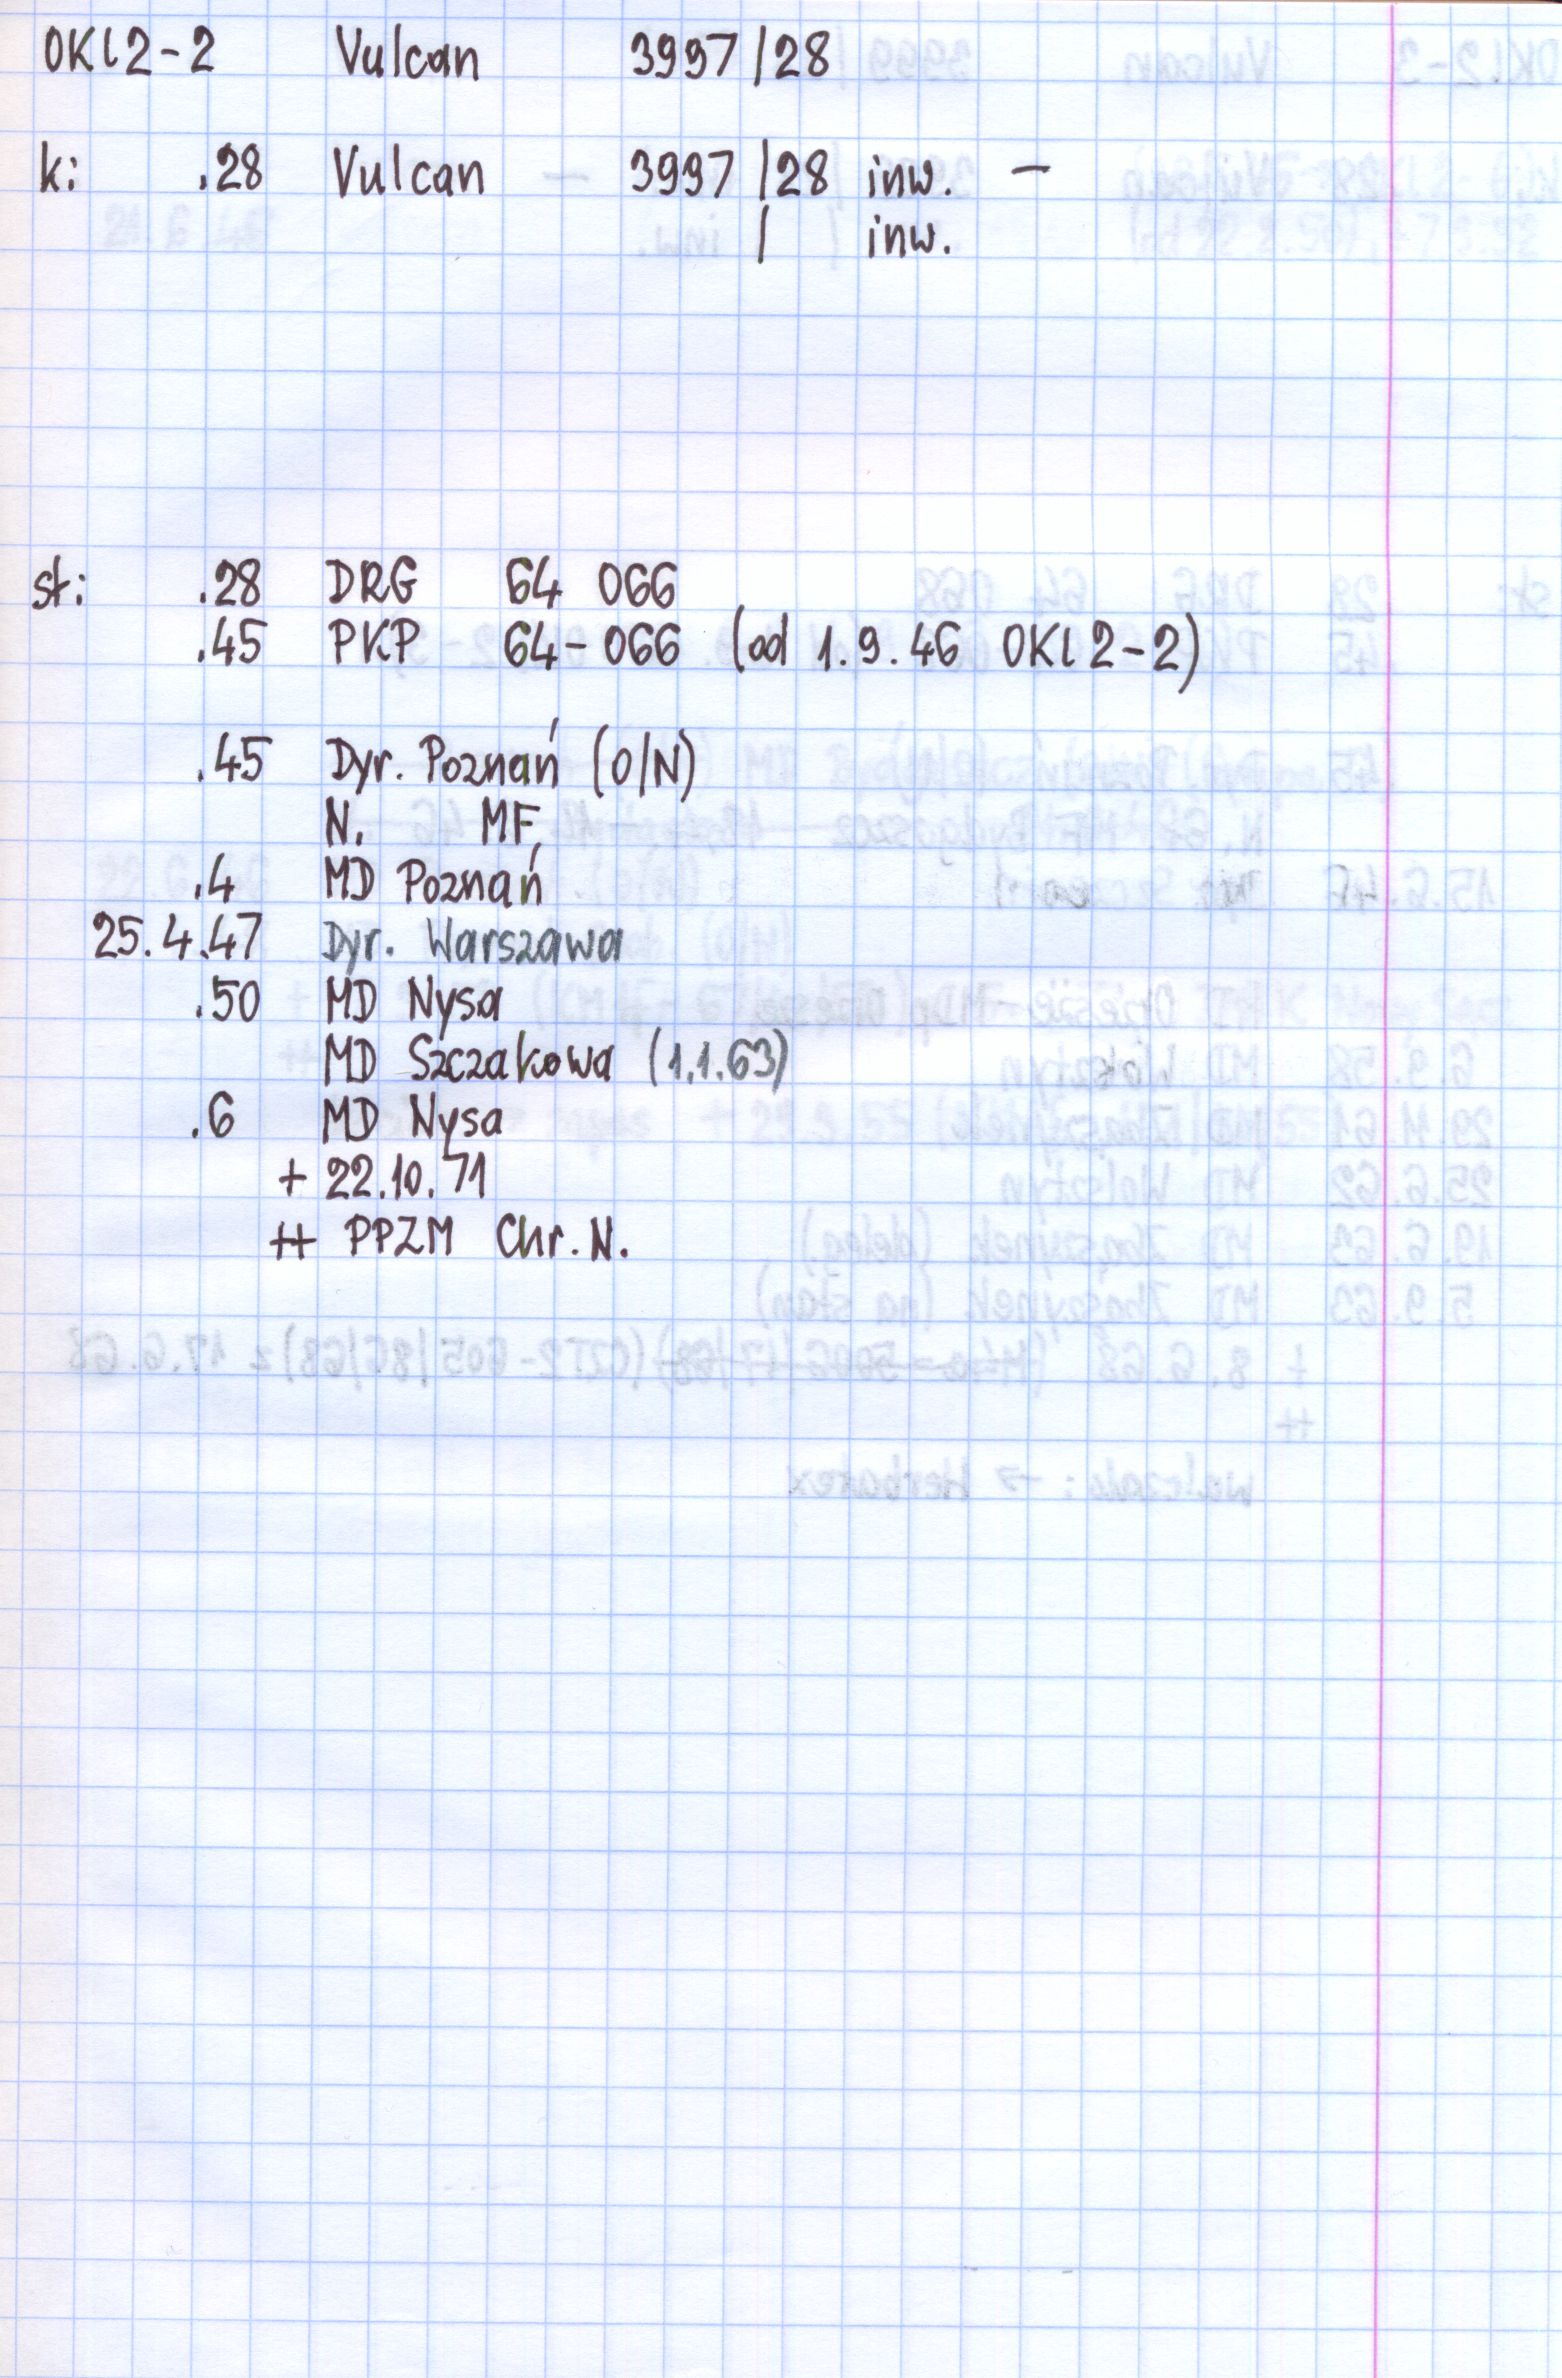 OKl2-2 Vulcan 3997/28
k: .28 Vulcan - 3997/28 inw. -
/ inw.
st: .28 DRG 64 066
.45 PKP 64-066 (od 1.9.46 OKl2-2)
.45 Dyr. Poznań (O/N)
N. MF
.4 MD Poznań
25.4.47 Dyr. Warszawa
.50 MD Nysa
MD Szczakowa (1.1.63)
.6 MD Nysa
+ 22.10.71
++ PPZM Chr. N.